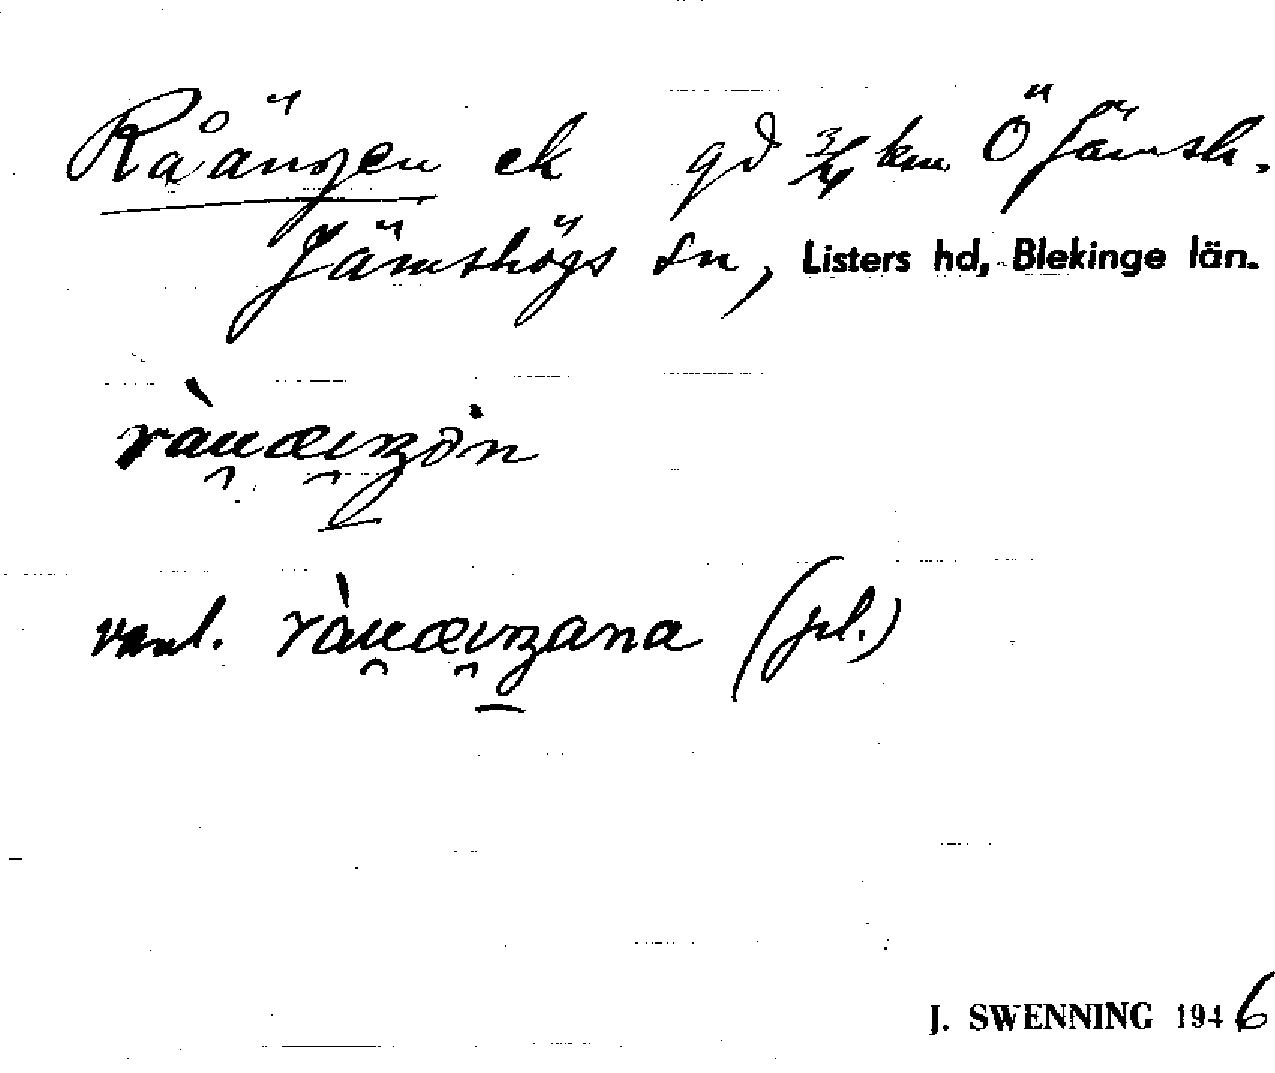 Råängen ek gd 3/4 km Ö Jämsh.
Jämshögs sn, Listers hd, Blekinge län.
ràu̯æi̯ŋən
vanl. ràu̯æi̯ŋana (pl.)
J. SWENNING 1946